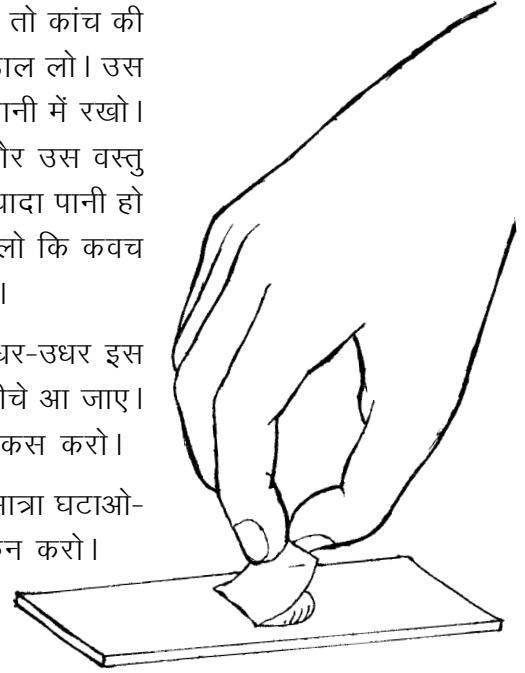 तो कांच की
डाल लो। उस
पानी में रखो।
और उस वस्तु
ज्यादा पानी हो
लो कि कवच
।
धर-उधर इस
नीचे आ जाए।
कस करो।
मात्रा घटाओ-
न करो।